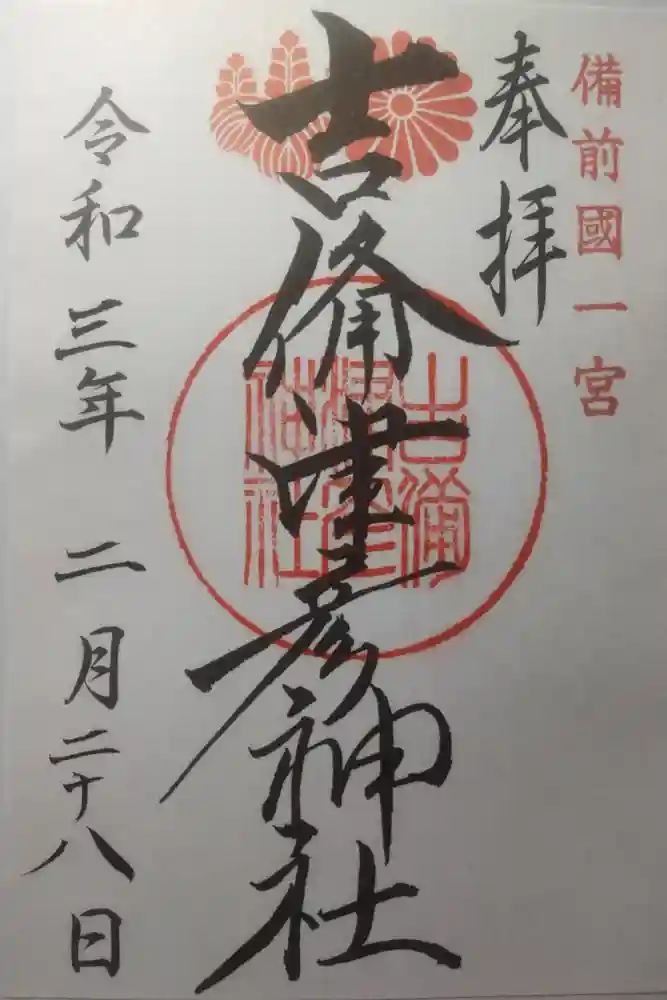 備前國一宮
奉拝
吉備津彦神社
吉備
津彦
神社
令和三年二月二十八日